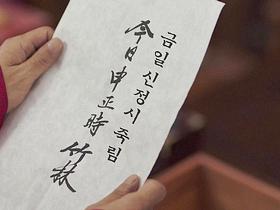 금일신정시죽림
今日申正時 竹林